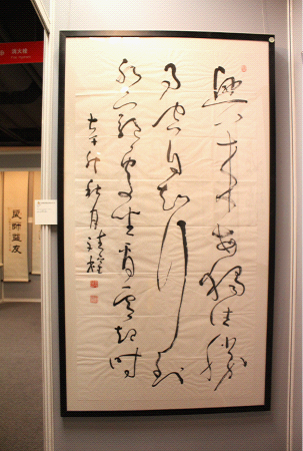 興来每獨往勝
事空自知行到
水窮處坐看雲起時
秋月
良師益友